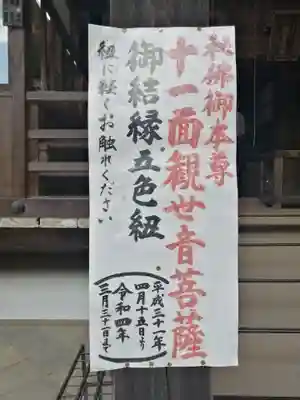 秘佛御本尊
十一面觀世音菩薩
御結縁五色紐
紐に軽くお触れください
(平成三十一年
四月十五日より
令和四年
三月三十一日まで)